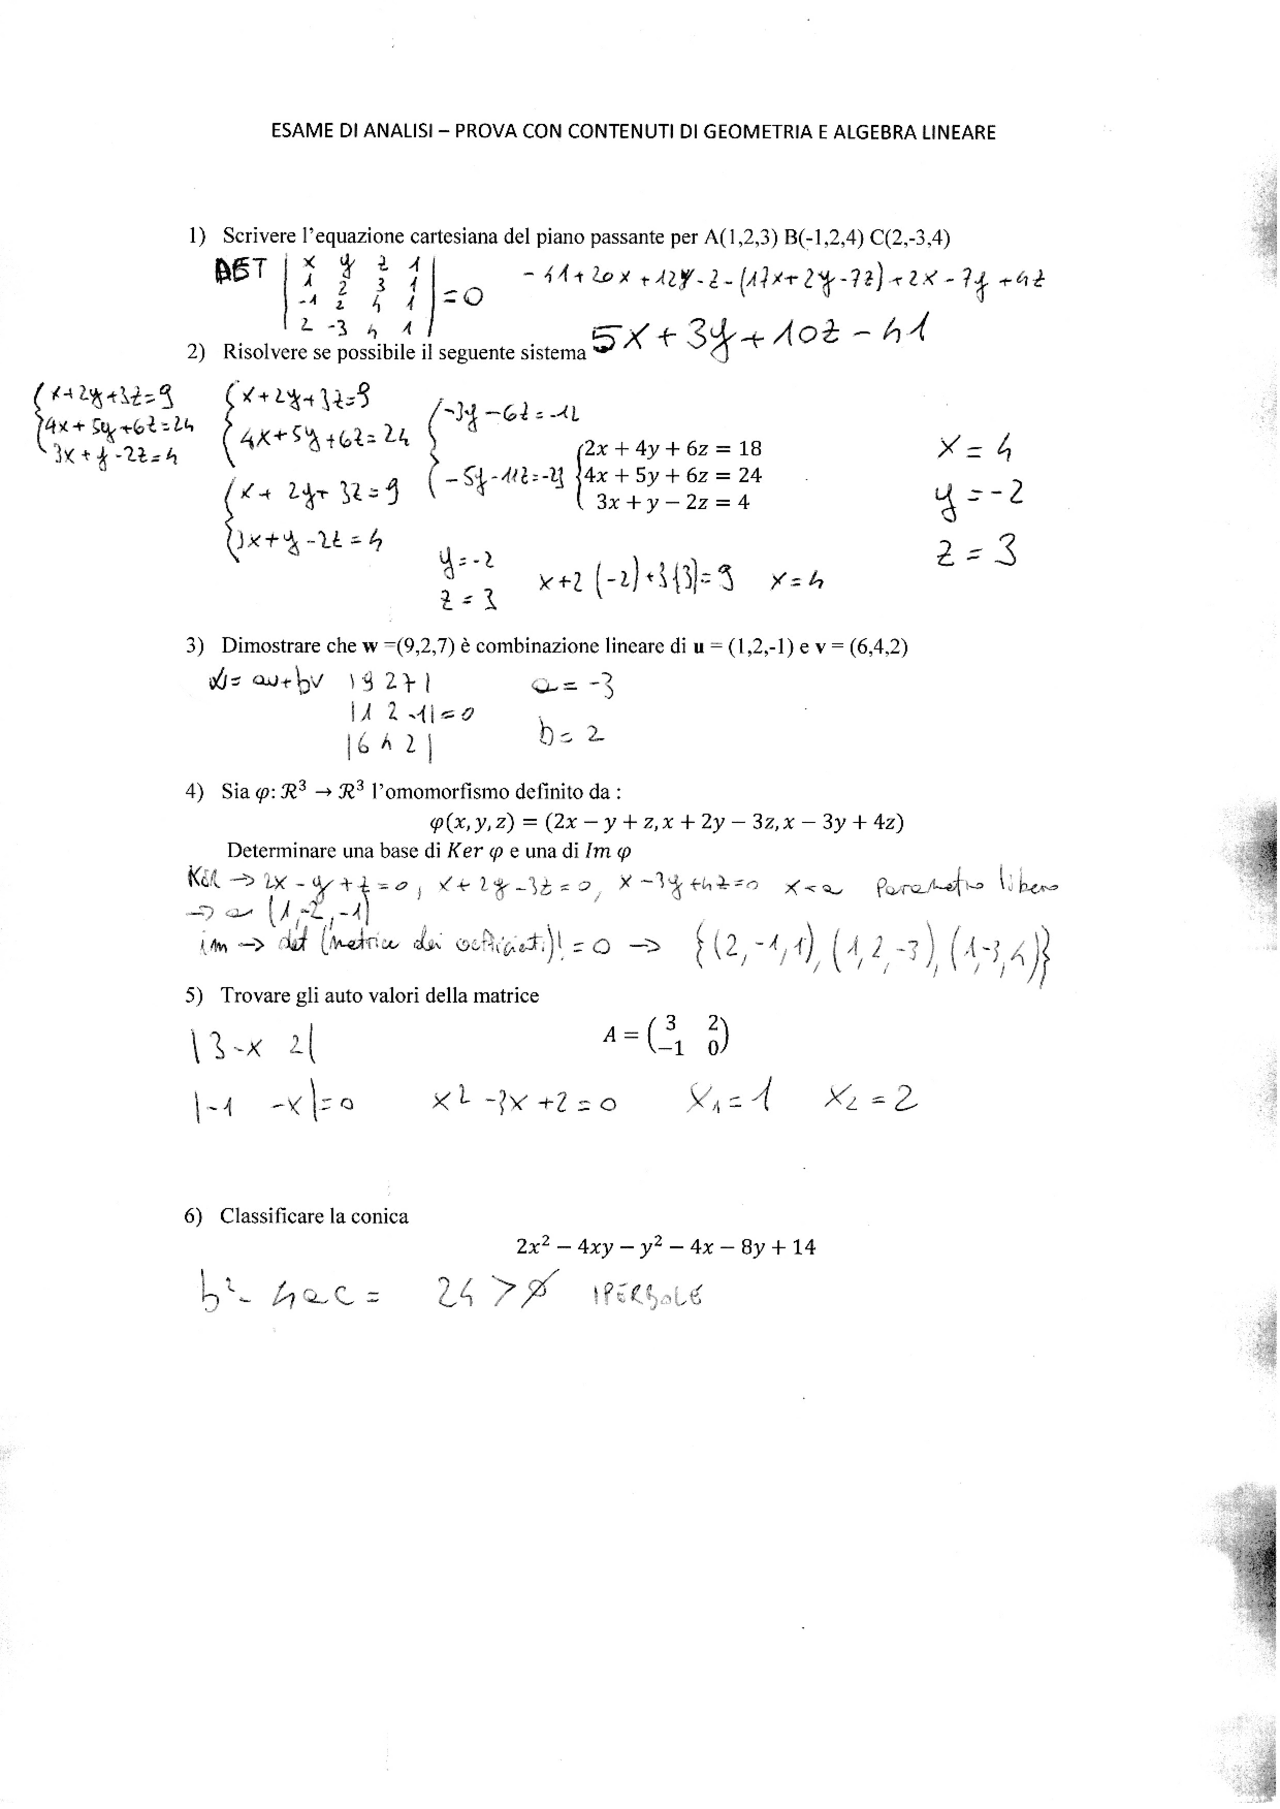 ESAME DI ANALISI – PROVA CON CONTENUTI DI GEOMETRIA E ALGEBRA LINEARE
1) Scrivere l'equazione cartesiana del piano passante per A(1,2,3) B(-1,2,4) C(2,-3,4)
DET | x y z 1 |
| 1 2 3 1 |
| -1 2 4 1 | = 0
| 2 -3 4 1 |
- 41 + 20x + 12y - z - (17x + 2y - 7z) + 2x - 7y + 4z
5x + 3y + 10z - 41
2) Risolvere se possibile il seguente sistema
{ x + 2y + 3z = 9
4x + 5y + 6z = 24
3x + y - 2z = 4
{ x + 2y + 3z = 9
4x + 5y + 6z = 24
{ x + 2y + 3z = 9
3x + y - 2z = 4
{ -3y - 6z = -12
-5y - 11z = -23
{ 2x + 4y + 6z = 18
4x + 5y + 6z = 24
3x + y − 2z = 4
y = -2
z = 3
x + 2 (-2) + 3(3) = 9 x = 4
x = 4
y = -2
z = 3
3) Dimostrare che w =(9,2,7) è combinazione lineare di u = (1,2,-1) e v = (6,4,2)
w = au + bv | 9 2 7 | a = -3
| 1 2 -1 | = 0
| 6 4 2 | b = 2
4) Sia φ: ℛ³ → ℛ³ l'omomorfismo definito da :
φ(x, y, z) = (2x − y + z, x + 2y − 3z, x − 3y + 4z)
Determinare una base di Ker φ e una di Im φ
Ker → 2x - y + z = 0, x + 2y - 3z = 0, x - 3y + 4z = 0 x = a parametro libero
→ a (1, -2, -1)
im → det (matrice dei coefficienti) != 0 → {(2, -1, 1), (1, 2, -3), (1, -3, 4)}
5) Trovare gli auto valori della matrice
A = ( 3 2
−1 0 )
| 3-x 2 |
| -1 -x | = 0 x² - 3x + 2 = 0 x₁ = 1 x₂ = 2
6) Classificare la conica
2x² − 4xy − y² − 4x − 8y + 14
b² - 4ac = 24 > 0 IPERBOLE